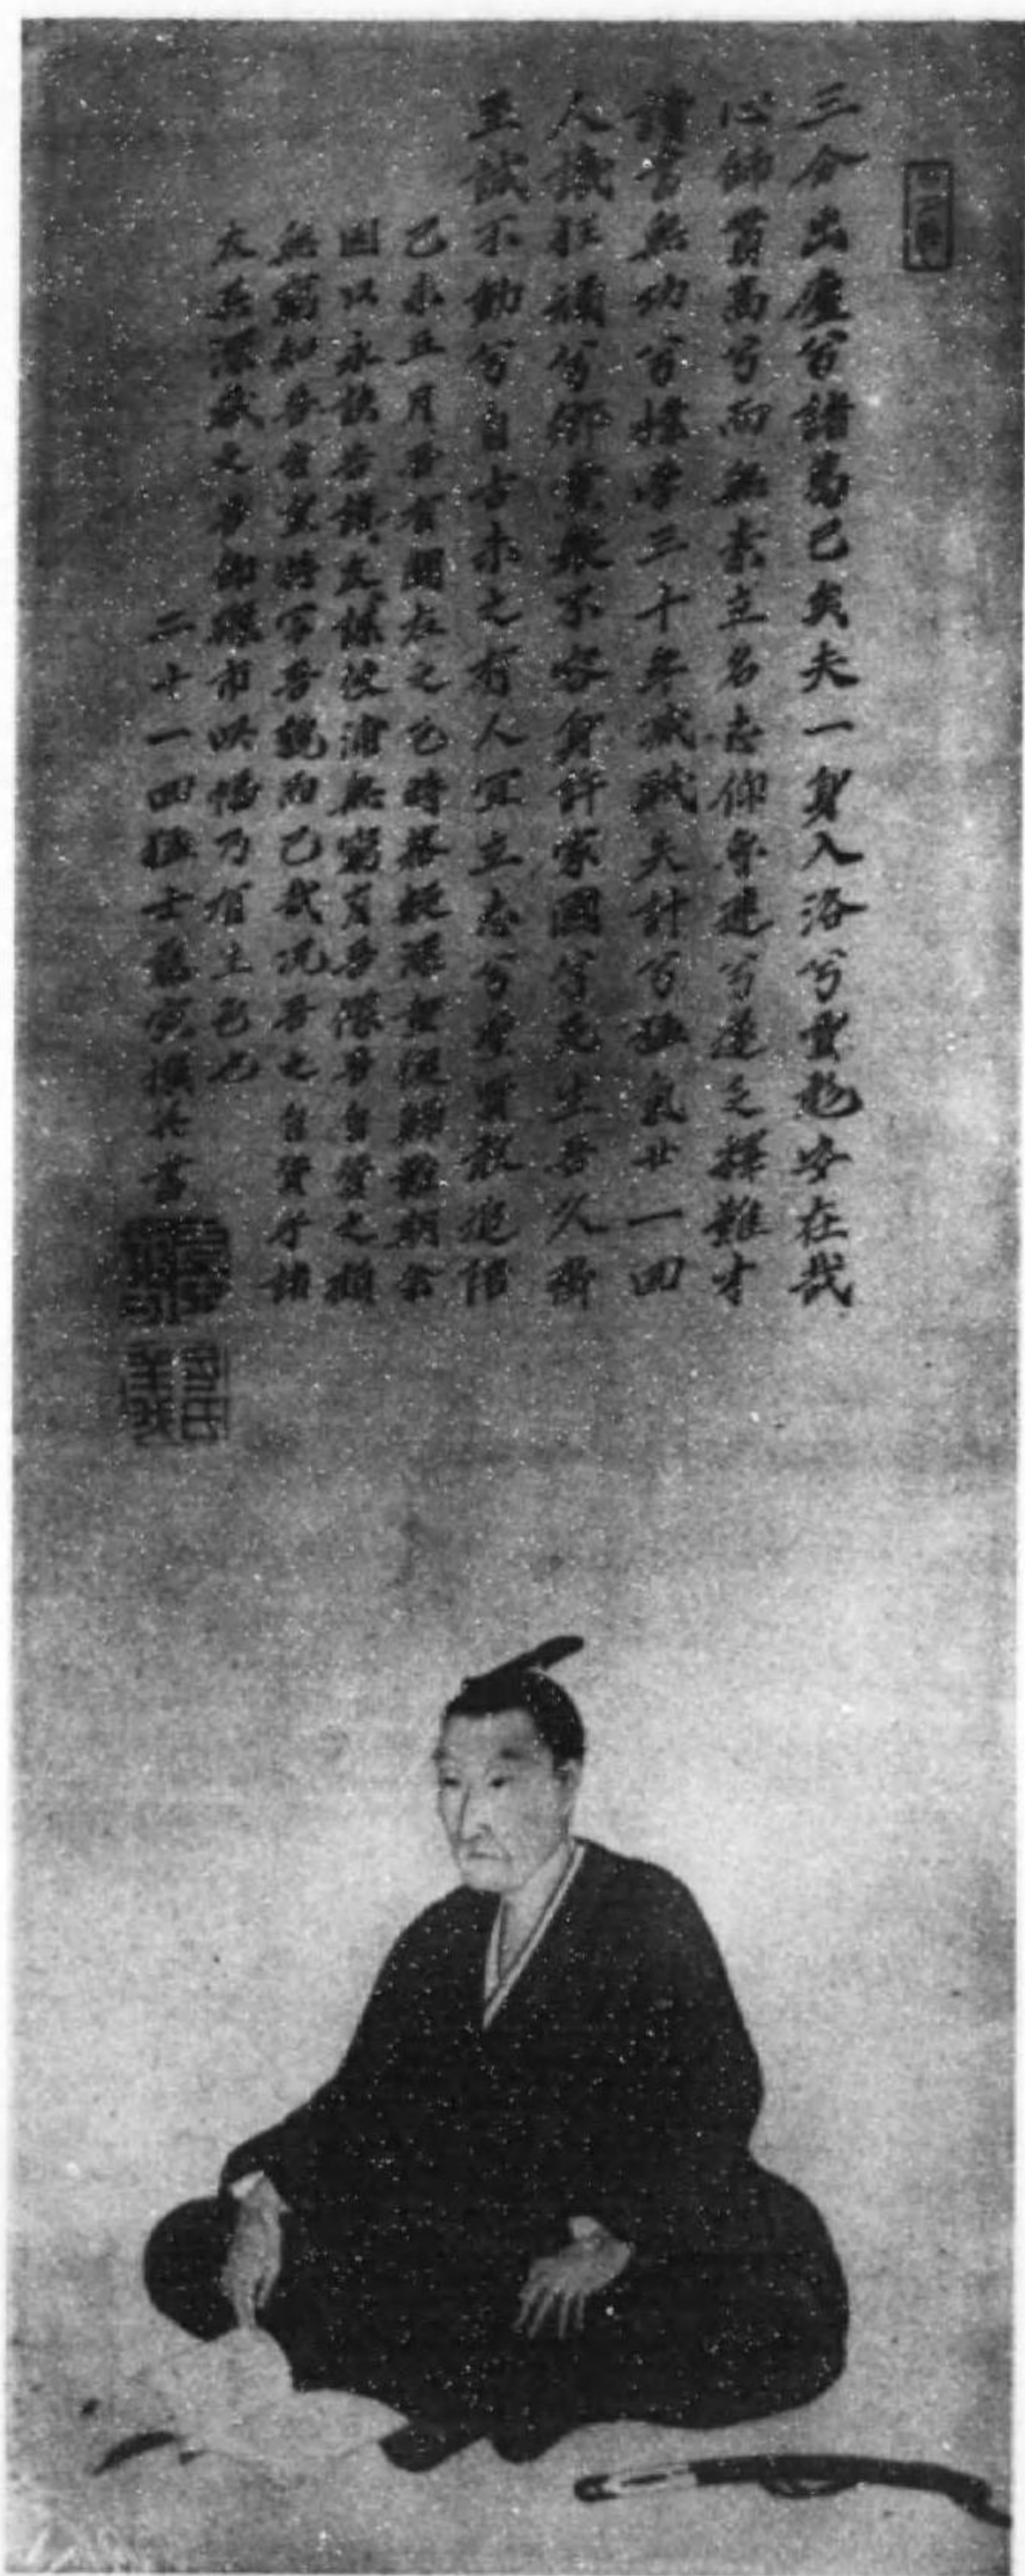 三分出廬兮諸葛已矣夫一身入洛兮賈彪安在哉
心師貫高兮而無素立名志仰魯連兮遂乏釋難才
讀書無功兮樸學三十年滅賊失計兮猛氣廿一回
人譏狂頑兮鄉黨衆不容身許家國兮死生吾久齊
至誠不動兮自古未之有人宜立志兮聖賢敢追陪
己未五月吾有關左之厄時幕疑深重復歸難期余
因以永訣告諸友謀使浦無窮肖吾像吾自賛之顧
無窮知吾者豈特写吾貌而已哉况吾之自賛乎諸
友其深藏之吾即磔市此幅乃有生色也
二十一回猛士藤寅撰并書